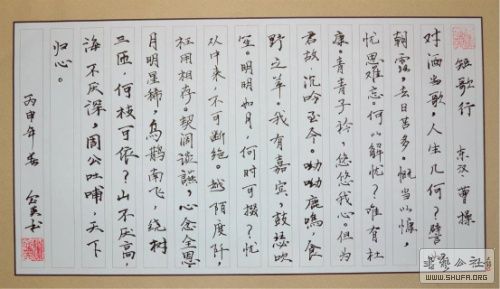 短歌行 东汉 曹操
对酒当歌，人生几何？譬
朝露，去日苦多。慨当以慷，
忧思难忘。何以解忧？唯有杜
康。青青子衿，悠悠我心。但为
君故，沉吟至今。呦呦鹿鸣，食
野之苹。我有嘉宾，鼓瑟吹
笙。明明如月，何时可掇？忧
从中来，不可断绝。越陌度阡
枉用相存。契阔谈讌，心念恩
月明星稀，乌鹊南飞，绕树
三匝，何枝可依？山不厌高，
海不厌深，周公吐哺，天下
归心。
丙申年春 书
公社
WWW.SHUFA.ORG